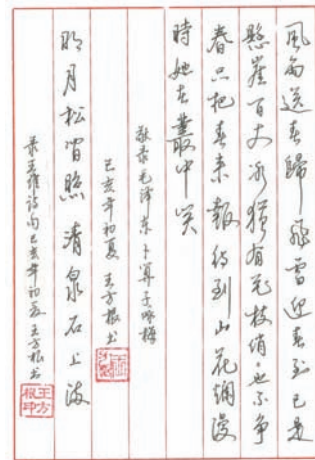 風雨送春歸飛雪迎春到已是
懸崖百丈冰猶有花枝俏也不爭
春只把春来報待到山花爛漫
時她在叢中笑
敬录毛泽东卜算子咏梅
己亥年初夏王方根书
明月松間照清泉石上流
录王维诗句己亥年初夏王方根书
王方根印